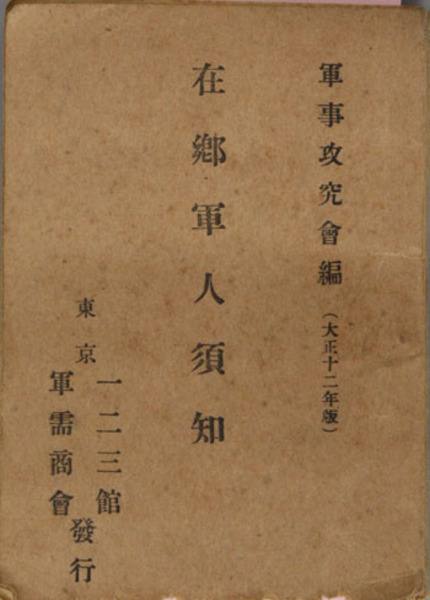 軍事攻究會編（大正十二年版）
在鄕軍人須知
東京
一二三館
軍需商會
發行